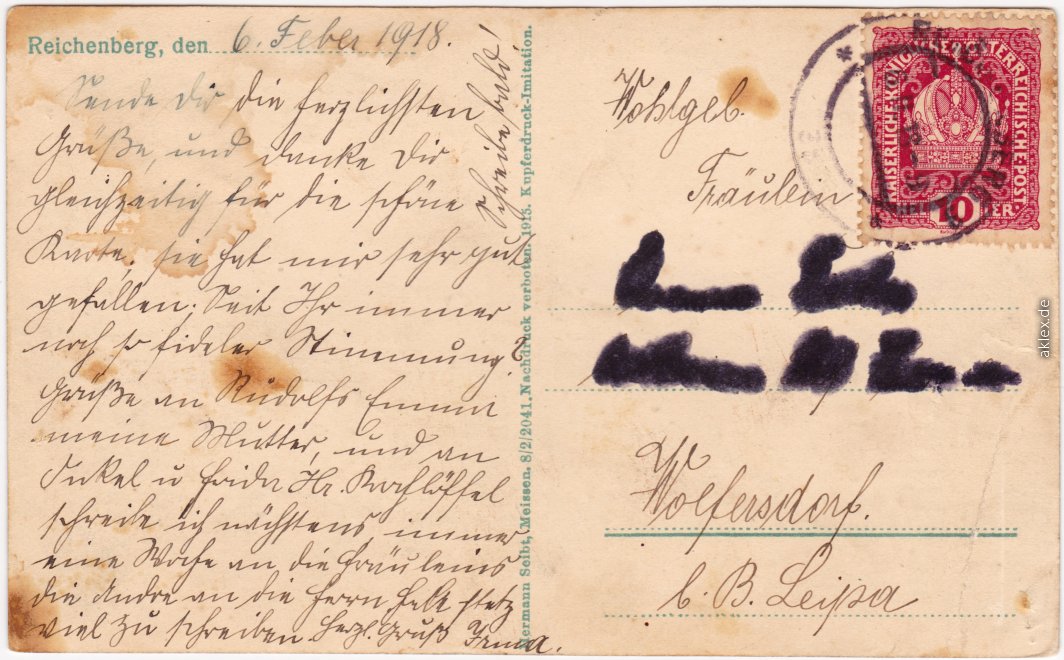 Reichenberg, den 6. Feber 1918.
Sende Dir die herzlichsten
Grüße, und danke Dir
gleichzeitig für die schöne
Karte, sie hat mir sehr gut
gefallen. Seit Ihr immer
noch so fideler Stimmung?
Grüße an Rudolfs Emmi
meine Mutter, und an
Onkel u Frida Hr. Kochlöffel
schreibe ich nächstens, immer
eine Woche an die Fräuleins
die Andre an die Herrn,
viel zu schreiben Herzl. Gruß Irma.
Schreibe bald!
Hermann Seibt, Meissen. 8/2/2041. Nachdruck verboten. 1915. Kupferdruck-Imitation.
Wohlgeb.
Fräulein
Wolfersdorf.
b. B. Leipa
KAISERLICHE KÖNIGLICHE ÖSTERREICHISCHE POST.
10 HELLER
aklex.de